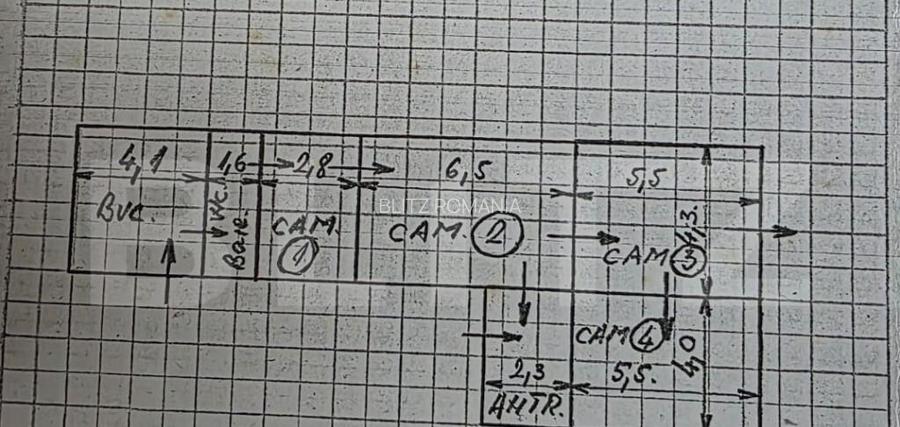 4,1
1,6
2,8
6,5
5,5
Buc.
WC.
Baie.
CAM.
1
CAM. 2
CAM 3
4,3.
BLITZ ROMANIA
CAM 4
4,0
2,3
5,5.
AHTR.